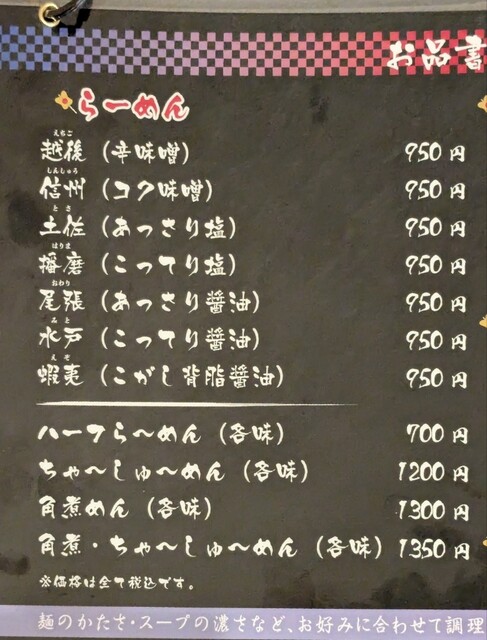 お品書
らーめん
えちご
越後（辛味噌） 950円
しんしゅう
信州（コク味噌） 950円
とさ
土佐（あっさり塩） 950円
はりま
播磨（こってり塩） 950円
おわり
尾張（あっさり醤油） 950円
みと
水戸（こってり醤油） 950円
えぞ
蝦夷（こがし背脂醤油） 950円
ハーフら〜めん（各味） 700円
ちゃ〜しゅ〜めん（各味） 1200円
角煮めん（各味） 1300円
角煮・ちゃ〜しゅ〜めん（各味） 1350円
※価格は全て税込です。
麺のかたさ・スープの濃さなど、お好みに合わせて調理